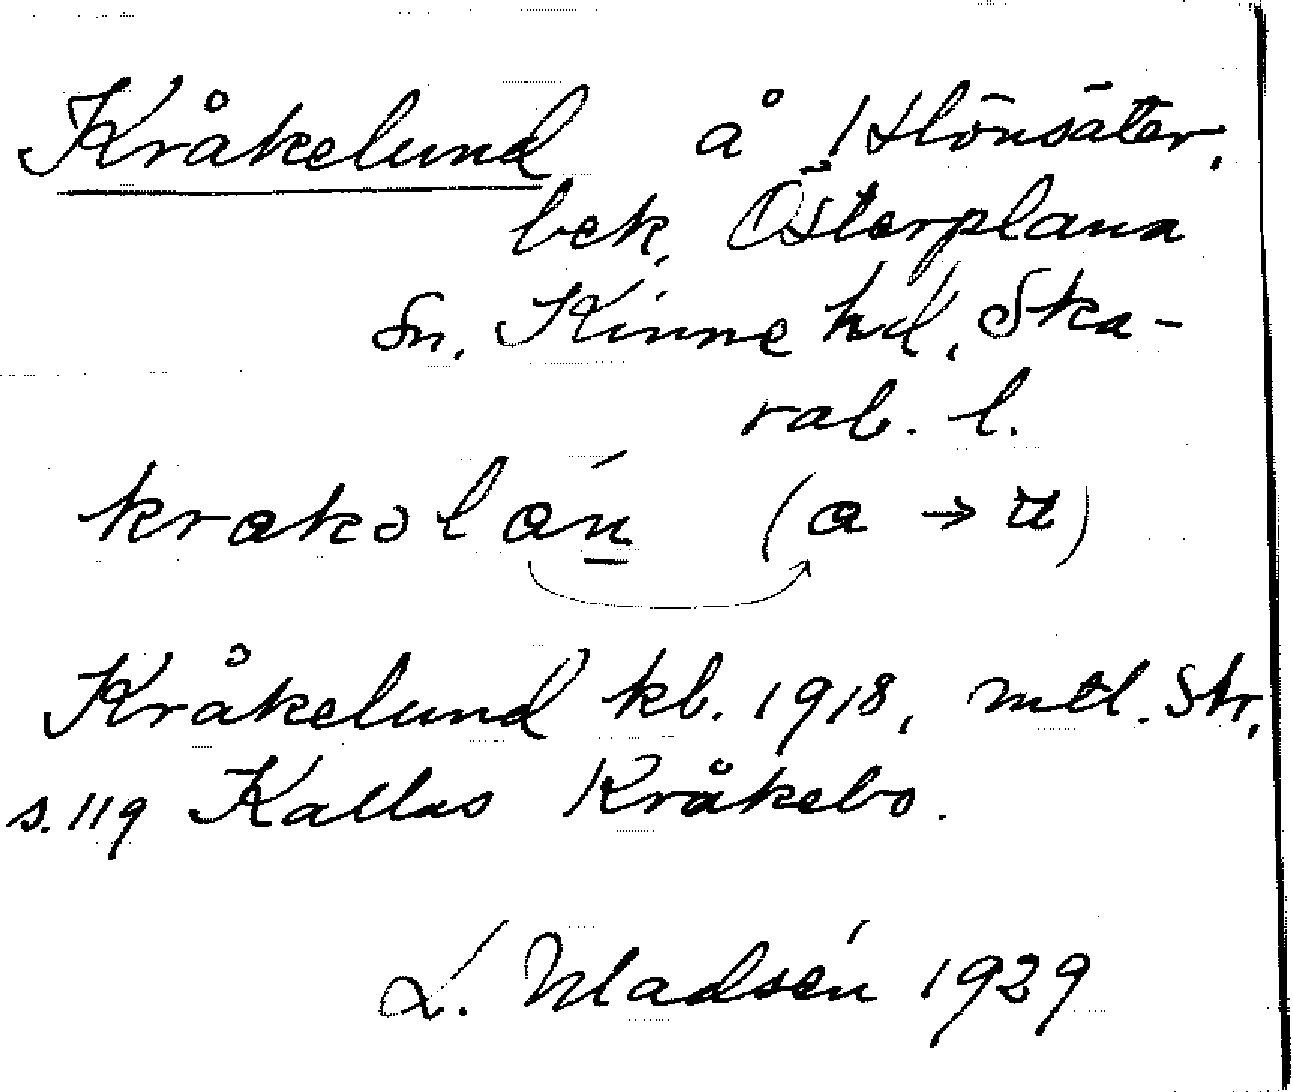 Kråkelund å Hönsäter,
bek. Österplana
sn. Kinne hd, Ska-
rab. l.
krakəlán (a → u)
Kråkelund kb. 1918, mtl. Str.
s. 119 Kallas Kråkebo.
L. Madsén 1929